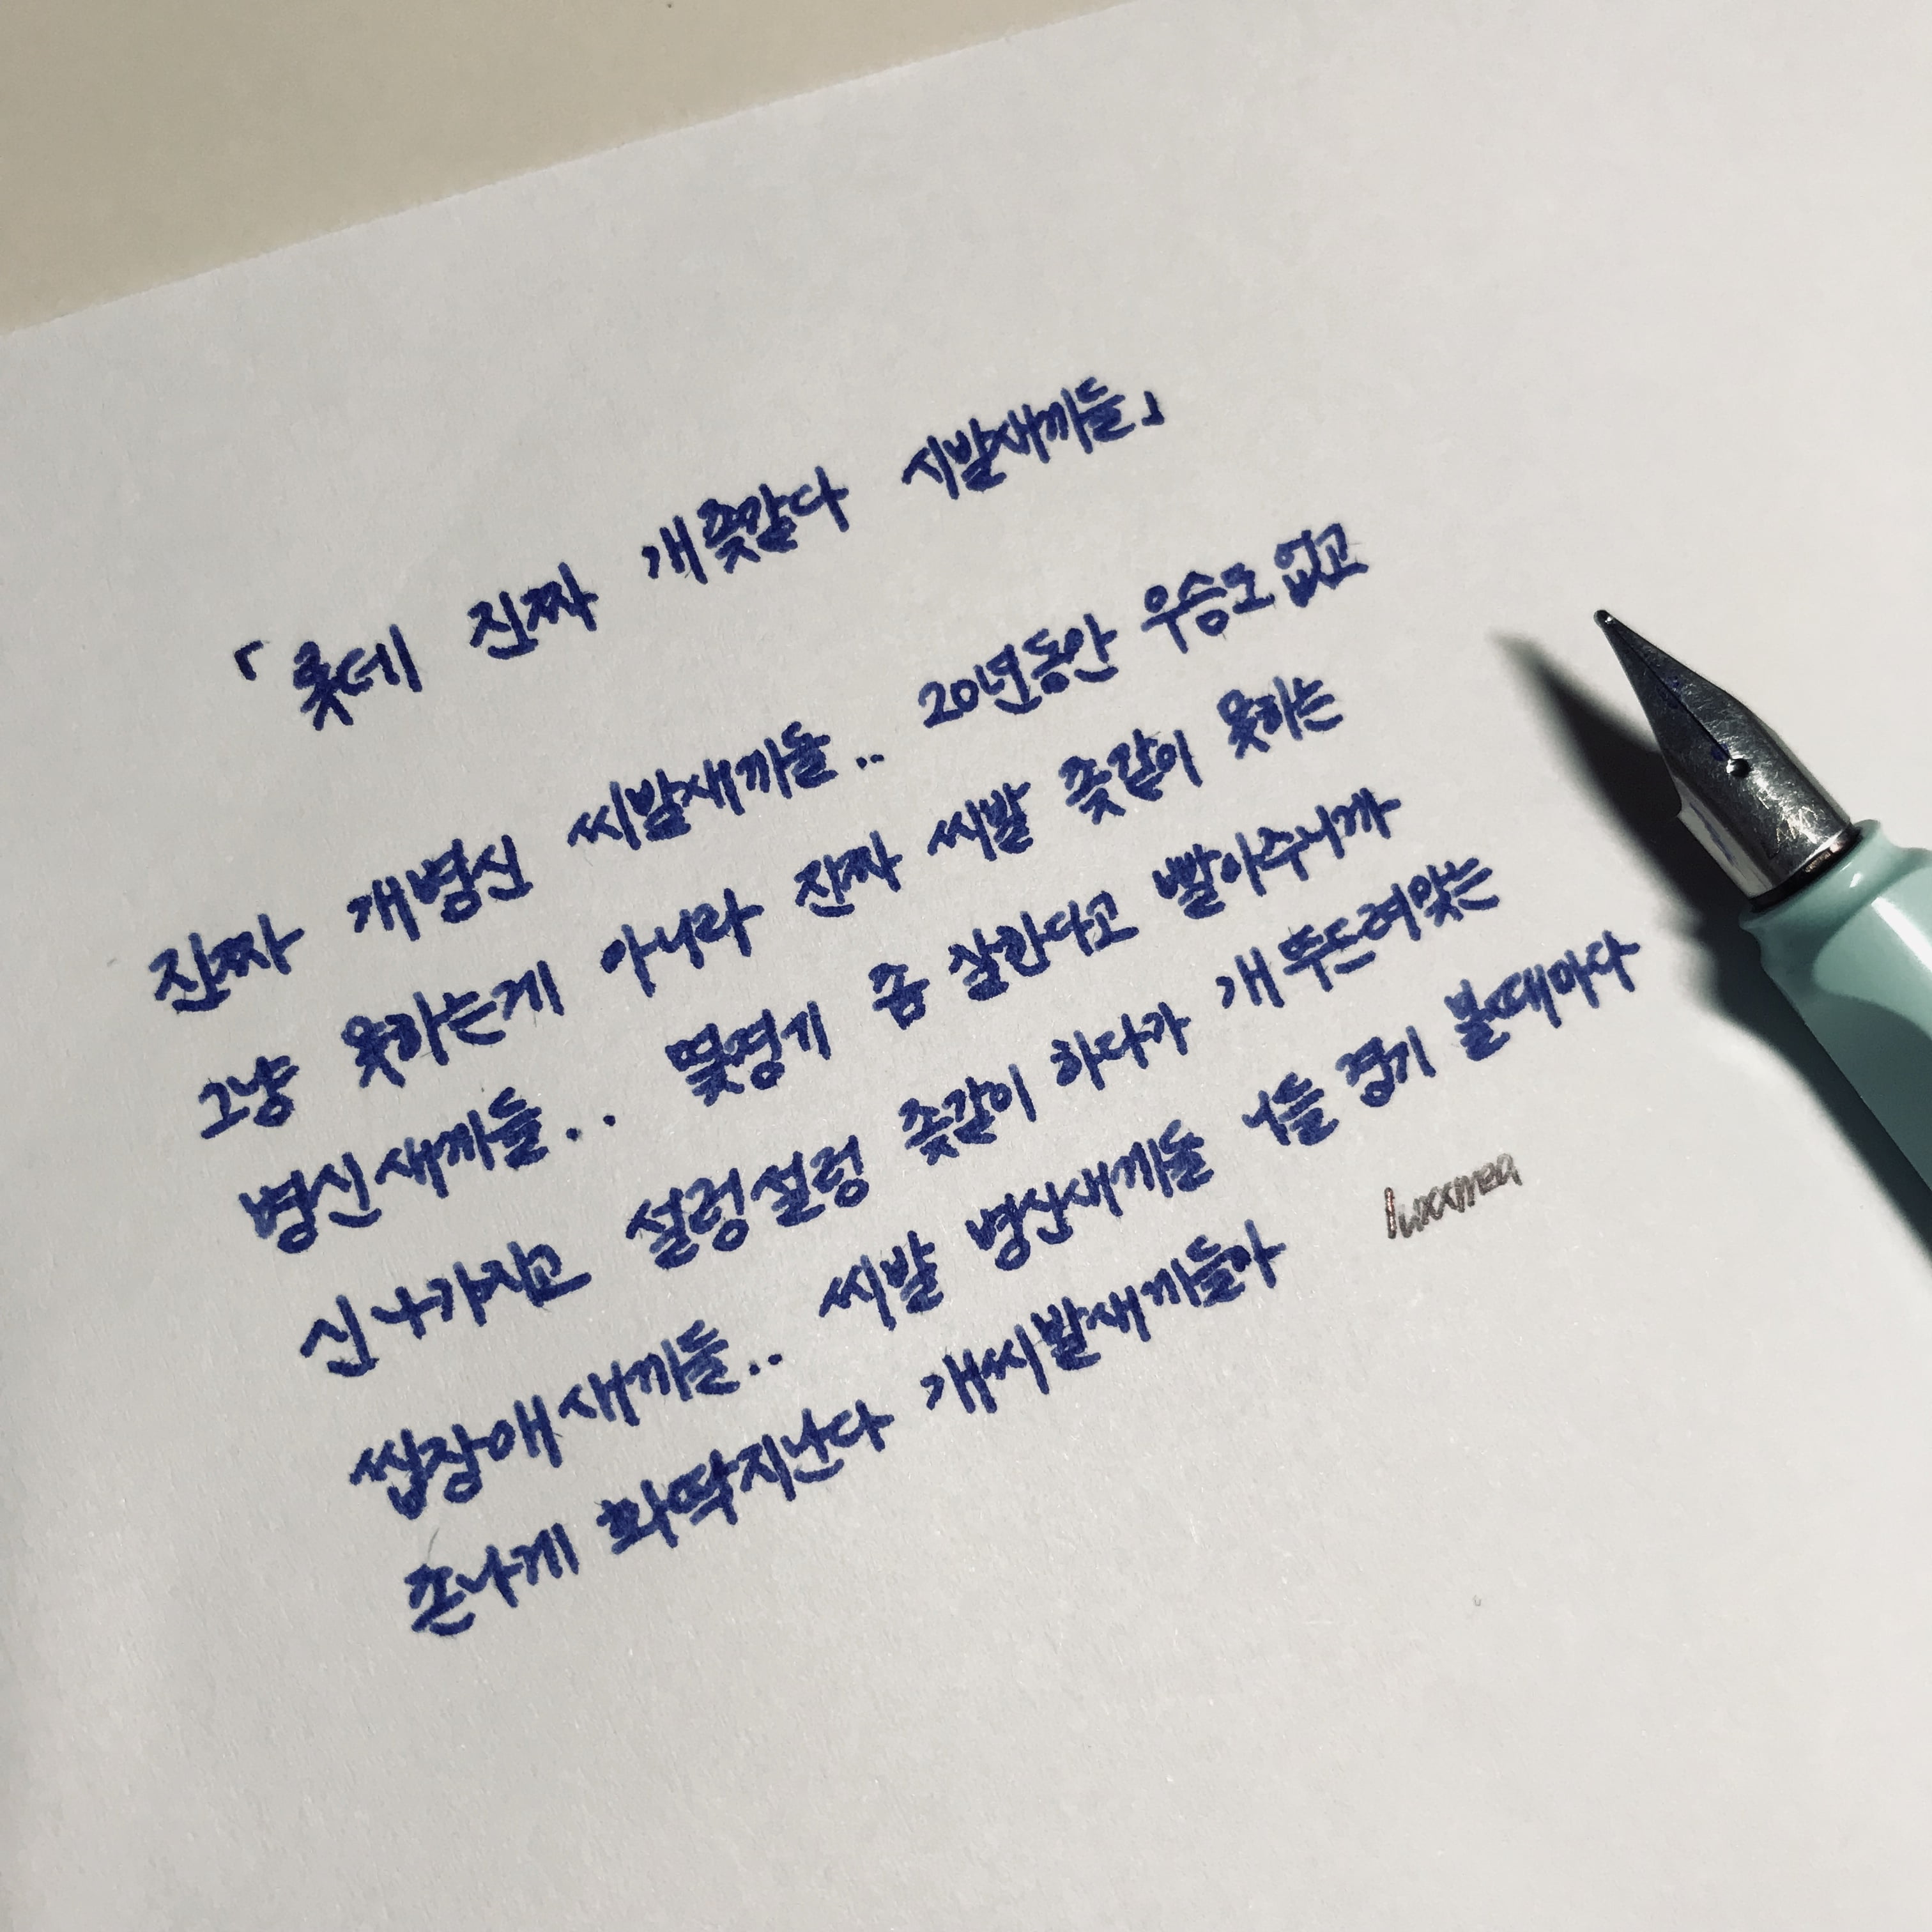 「롯데 진짜 개좆같다 시발새끼들」
진짜 개병신 씨발새끼들.. 20년동안 우승도 없고
그냥 못하는게 아니라 진짜 씨발 좆같이 못하는
병신새끼들.. 몇경기 좀 잘한다고 빨아주니까
신나가지고 설렁설렁 좆같이 하다가 개뚜드려맞는
씹장애새끼들.. 씨발 병신새끼들 너들 경기 볼때마다
존나게 화딱지난다 개씨발새끼들아